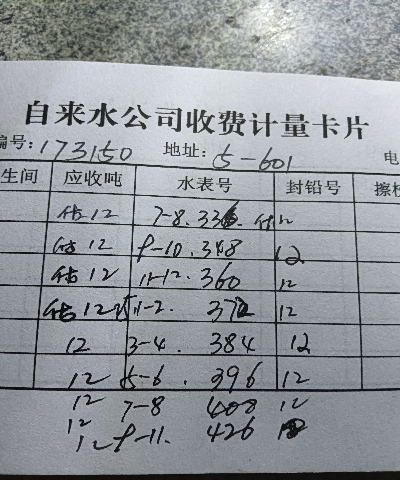 自来水公司收费计量卡片
编号: 173150 地址: 5-601 电
生间 应收吨 水表号 封铅号 擦校
估12 7-8. 336. 估12
估12 9-10. 348 12
估12 11-12. 360 12
估12 1-2. 372 12
12 3-4. 384 12
12 5-6. 396 12
12 7-8 408 12
12
12 9-11. 426